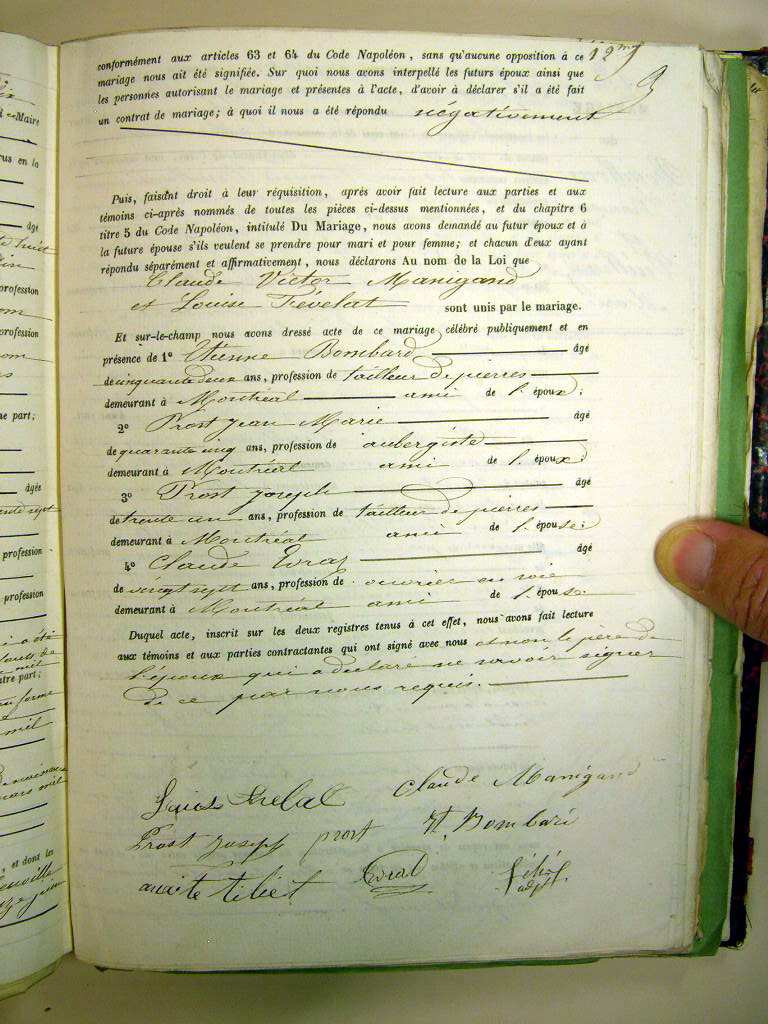 12 my
conformément aux articles 63 et 64 du Code Napoléon, sans qu'aucune opposition à ce
mariage nous ait été signifiée. Sur quoi nous avons interpellé les futurs époux ainsi que
les personnes autorisant le mariage et présentes à l'acte, d'avoir à déclarer s'il a été fait
un contrat de mariage; à quoi il nous a été répondu négativement
Puis, faisant droit à leur réquisition, après avoir fait lecture aux parties et aux
témoins ci-après nommés de toutes les pièces ci-dessus mentionnées, et du chapitre 6
titre 5 du Code Napoléon, intitulé Du Mariage, nous avons demandé au futur époux et à
la future épouse s'ils veulent se prendre pour mari et pour femme; et chacun d'eux ayant
répondu séparément et affirmativement, nous déclarons Au nom de la Loi que
Claude Victor Manigand
et Louise Févelat sont unis par le mariage.
Et sur-le-champ nous avons dressé acte de ce mariage célébré publiquement et en
présence de 1º Etienne Bombard âgé
de cinquante deux ans, profession de tailleur de pierres
demeurant à Montréal ami de l. époux;
2º Prost Jean Marie âgé
de quarante cinq ans, profession de aubergiste
demeurant à Montréal ami de l. époux;
3º Prost Joseph âgé
de trente un ans, profession de tailleur de pierres
demeurant à Montréal ami de l. épouse;
4º Claude Evras âgé
de vingt sept ans, profession de ouvrier en soie
demeurant à Montréal ami de l. épouse.
Duquel acte, inscrit sur les deux registres tenus à cet effet, nous avons fait lecture
aux témoins et aux parties contractantes qui ont signé avec nous et non le père de
l'époux qui a déclaré ne savoir signer
de ce par nous requis.
Claude Manigand
Prost Joseph prost Et. Bombard
Evral